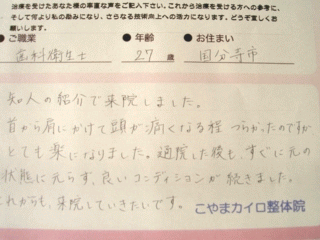 治療を受けたあなた様の率直な声をご記入下さい。これから治療を受ける方への参考に、
そして何より私の励みになり、さらなる技術向上への活力になります。どうぞ宜しくお
願いします。
●ご職業 ●年齢 ●お住まい
歯科衛生士 27歳 国分寺市
知人の紹介で来院しました。
首から肩にかけて頭が痛くなる程 つらかったのですが
とても楽になりました。通院した後も、すぐに元の
状態に元らず、良いコンディションが続きました。
これからも、来院していきたいです。
こやまカイロ整体院